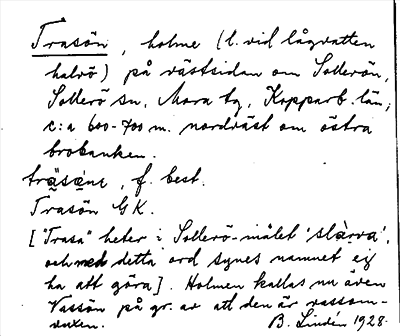 Trasön, holme (l. vid lågvatten
halvö) på västsidan om Sollerön,
Sollerö sn, Mora tg, Kopparb. län;
c:a 600-700 m. nordväst om östra
brobanken.
träsęne, f. best.
Trasön GK.
["Trasa" heter i Sollerö-målet 'slàrva',
och med detta ord synes namnet ej
ha att göra]. Holmen kallas nu även
Vassön på gr. av att den är vassom-
vuxen. B. Lindén 1928.